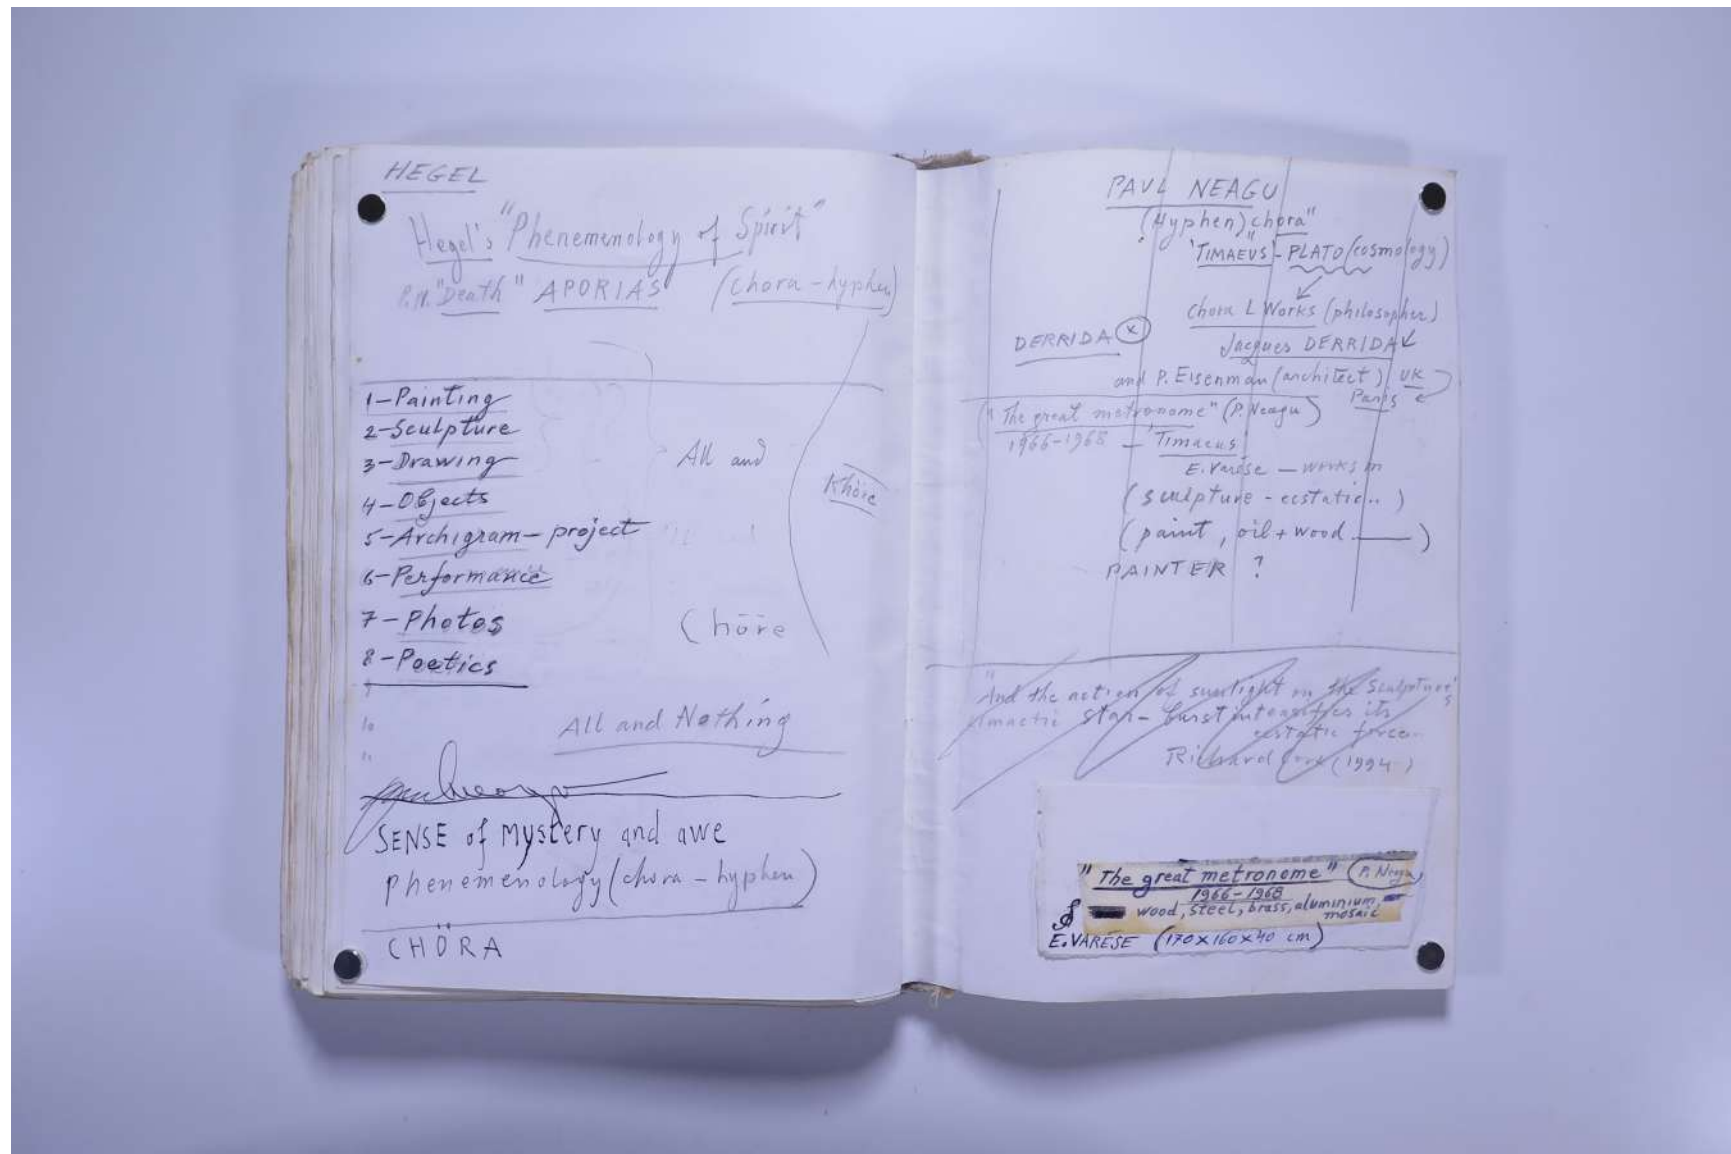 HEGEL
Hegel's "Phenemenology of Spirit"
P.N. "Death" APORIAS (chora-hyphen)
1-Painting
2-Sculpture
3-Drawing
4-Objects
5-Archigram-project
6-Performance
7-Photos
8-Poetics
9
10
11
All and
Chōre
Khōre
All and Nothing
SENSE of mystery and awe
phenemenology (chora-hyphen)
CHÖRA
PAUL NEAGU
(Hyphen) chora"
'TIMAEUS'-PLATO (cosmology)
Chora L Works (philosopher)
DERRIDA (x) Jacques DERRIDA
and P. Eisenman (architect) UK
Paris
("The great metronome" (P. Neagu)
1966-1968 - 'Timaeus'
E. Varése - works in
(sculpture - ecstatic..)
(paint, oil + wood ——)
PAINTER ?
"And the action of sunlight on the Sculpture's
climactic star-burst intensifies its
ecstatic force.
Richard Cork (1994)
"The great metronome" (P. Neagu)
1966-1968
wood, steel, brass, aluminium,
mosaic
E. VARÉSE (170x160x40 cm)